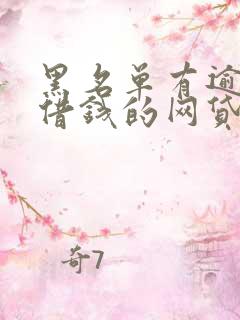 黑名单有逾
借钱的网贷
奇7